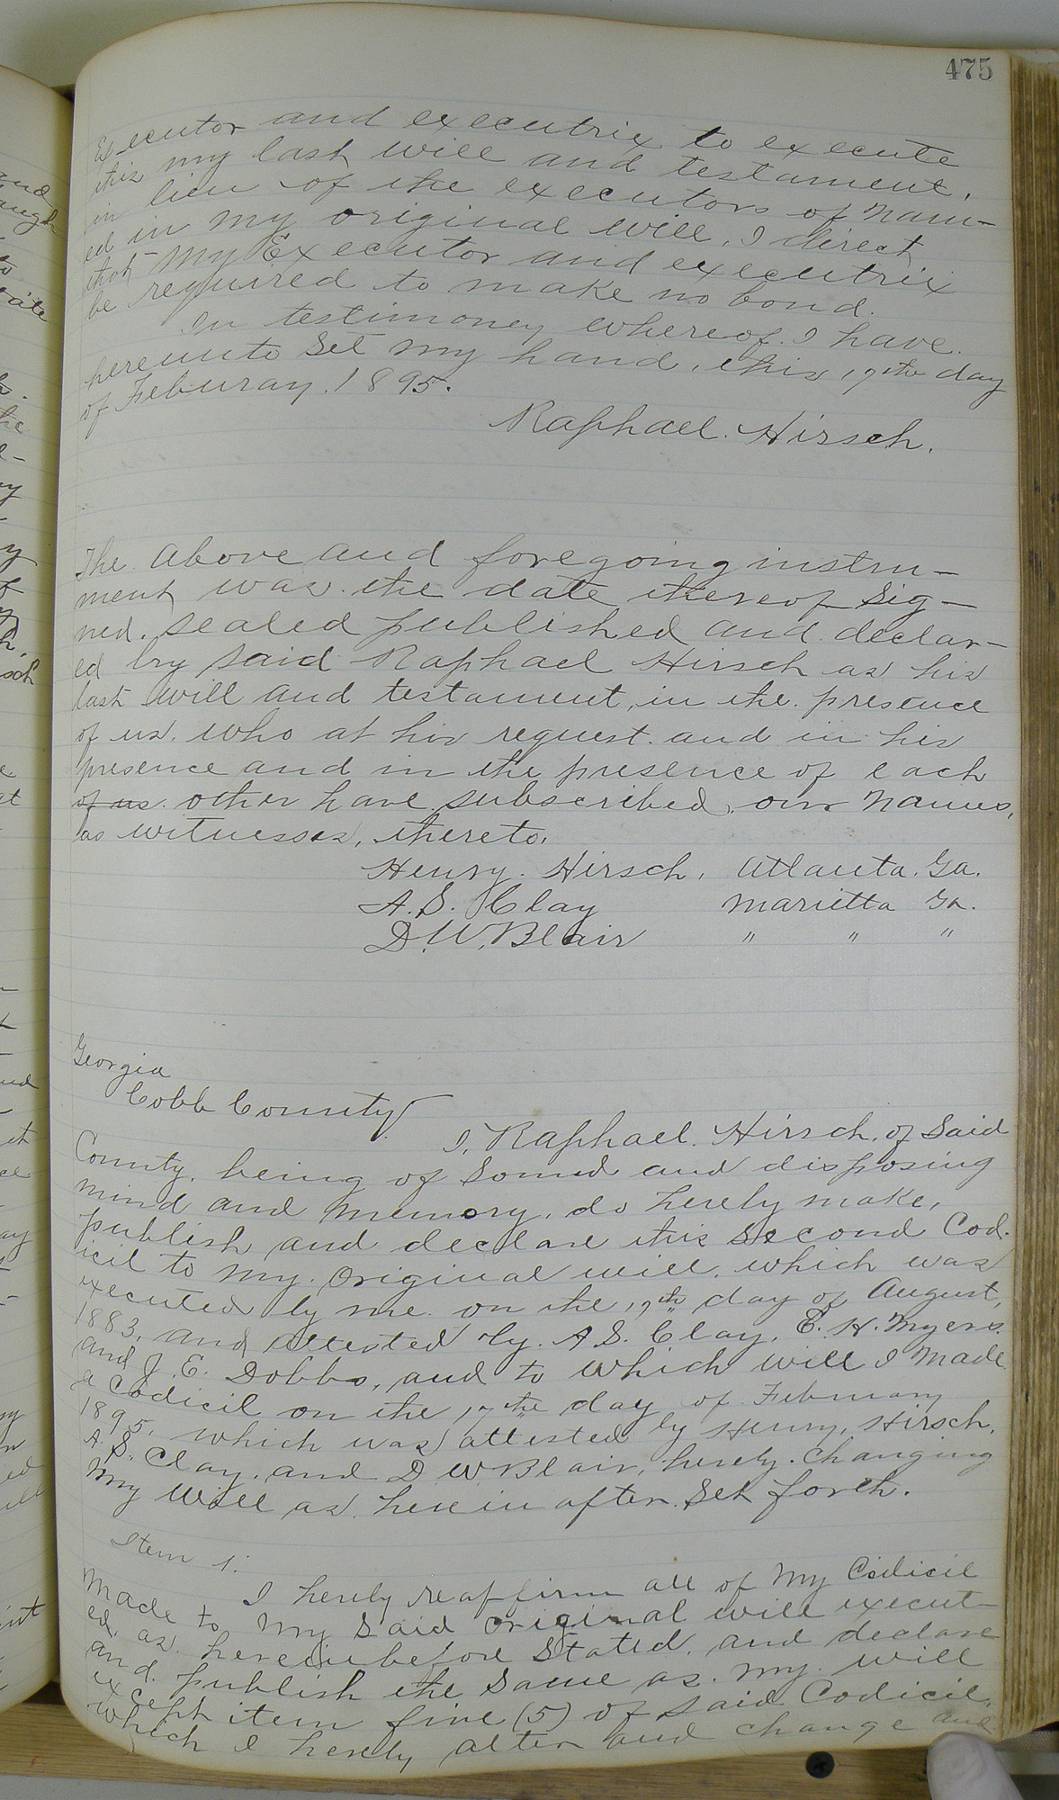 475
Executor and executrix to execute
this my last will and testament,
in lieu of the executors of nam-
ed in my original will, I direct
that my Executor and executrix
be required to make no bond.
In testimoney whereof I have
hereunto Set my hand, this 17th day
of Feburay, 1895.
Raphael. Hirsch.
The above and foregoing instru-
ment was the date thereof Sig-
ned. Sealed published and declar-
ed by Said Raphael Hirsch as his
last will and testament, in the presence
of us. who at his request. and in his
presence and in the presence of each
of us other have subscribed our names,
as witnesses, thereto.
Henry. Hirsch, Atlanta. Ga.
A. S. Clay Marietta Ga.
D. W. Blair " " "
Georgia
Cobb County
I, Raphael. Hirsch, of Said
County, being of Sound and disposing
mind and memory, do hereby make,
publish and declare this second Cod-
icil to my Original will, which was
executed by me on the 17th day of August,
1883, and attested by A. S. Clay, E. H. Myers.
and J. E. Dobbs, and to which will I made
a codicil on the 17th day of February
1895, which was attested by Henry, Hirsch,
A. S. Clay, and D W Blair, hereby changing
my will as here in after Set forth.
Item 1.
I hereby reaffirm all of my Codicil
made to my Said original will execut-
ed, as hereinbefore Stated, and declare
and publish the Same as my will
except item five (5) of said Codicil,
which I hereby alter and change and